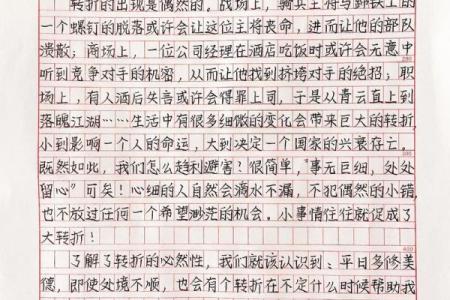 转折的出现是偶然的。战场上，骑兵主将马蹄铁上的
一个螺钉的脱落或许会让这位主将丧命，进而让他的部队
溃散；商场上，一位公司经理在酒店吃饭时或许会无意中
听到竞争对手的机密，从而让他找到挤垮对手的绝招；职
场上，有人酒后失言或许会得罪上司，于是从青云直上到
落魄江湖……生活中有很多细微的变化会带来巨大的转折，
小到影响一个人的命运，大到决定一个国家的兴衰存亡。
既然如此，我们怎么趋利避害？很简单，“事无巨细，处处
留心”可矣！心细的人自然会滴水不漏，不犯偶然的小错，
也不放过任何一个希望渺茫的机会。小事情往往就促成了
大转折！
了解了转折的必然性，我们就该认识到：平日多修美
德，即使处境不顺，也会有个转折在不定什么时候帮助我